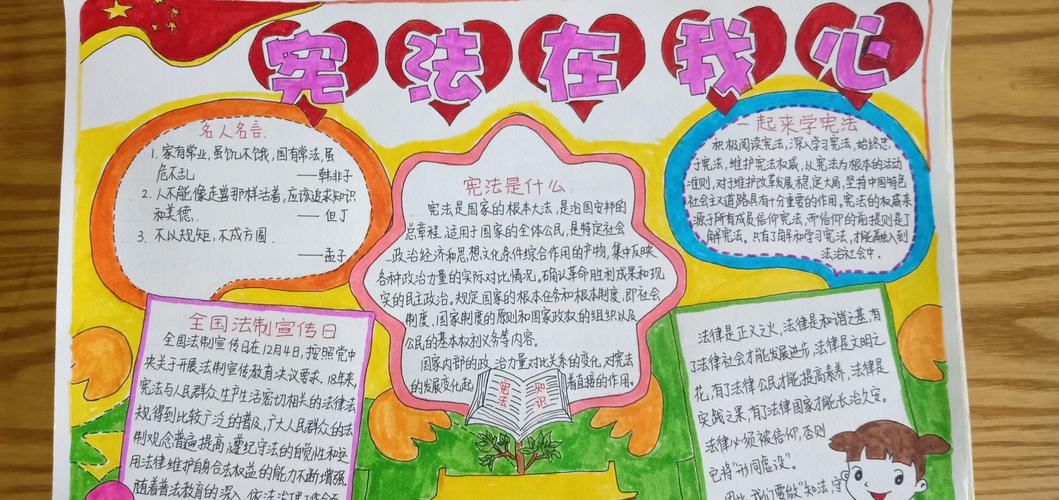 宪法在我心
名人名言
1. 家有常业，虽饥不饿，国有常法，虽
危不乱 ——韩非子
2. 人不能像走兽那样活着，应该追求知识
和美德. ——但丁
3. 不以规矩，不成方圆.
——孟子
宪法是什么
宪法是国家的根本大法，是治国安邦的
总章程，适用于国家的全体公民，是特定社会
政治经济和思想文化条件综合作用的产物，集中反映
各种政治力量的实际对比情况。确认革命胜利成果和现
实的民主政治，规定国家的根本任务和根本制度，即社会
制度、国家制度的原则和国家政权的组织以及
公民的基本权利义务等内容。
国家内部的政治力量对比关系的变化，对宪法
的发展变化起 着直接的作用。
宪法
知识
一起来学宪法
积极阅读宪法，深入学习宪法，始终忠
于宪法，维护宪法权威，从宪法为根本的活动
准则，对于维护改革发展稳定大局，坚持中国特色
社会主义道路具有十分重要的作用，宪法的权威来
源于所有成员信仰宪法，而信仰的前提则是了
解宪法。只有了解和学习宪法，才能融入到
法治社会中.
全国法制宣传日
全国法制宣传日在12月4日，按照党中
央关于开展法制宣传教育决议要求，18年来，
宪法与人民群众生产生活密切相关的法律法
规得到比较广泛的普及，广大人民群众的法
制观念普遍提高，遵纪守法的自觉性和运
用法律维护自身合法权益的能力不断增强.
随着普法教育的深入，依法治理
法律是正义之火，法律是和谐之基，有
了法律社会才能发展进步，法律是文明之
花，有了法律公民才能提高素养，法律是
实践之果，有了法律国家才能长治久安。
法律必须被信仰，否则
它将“形同虚设”。
我们要做“知法，守